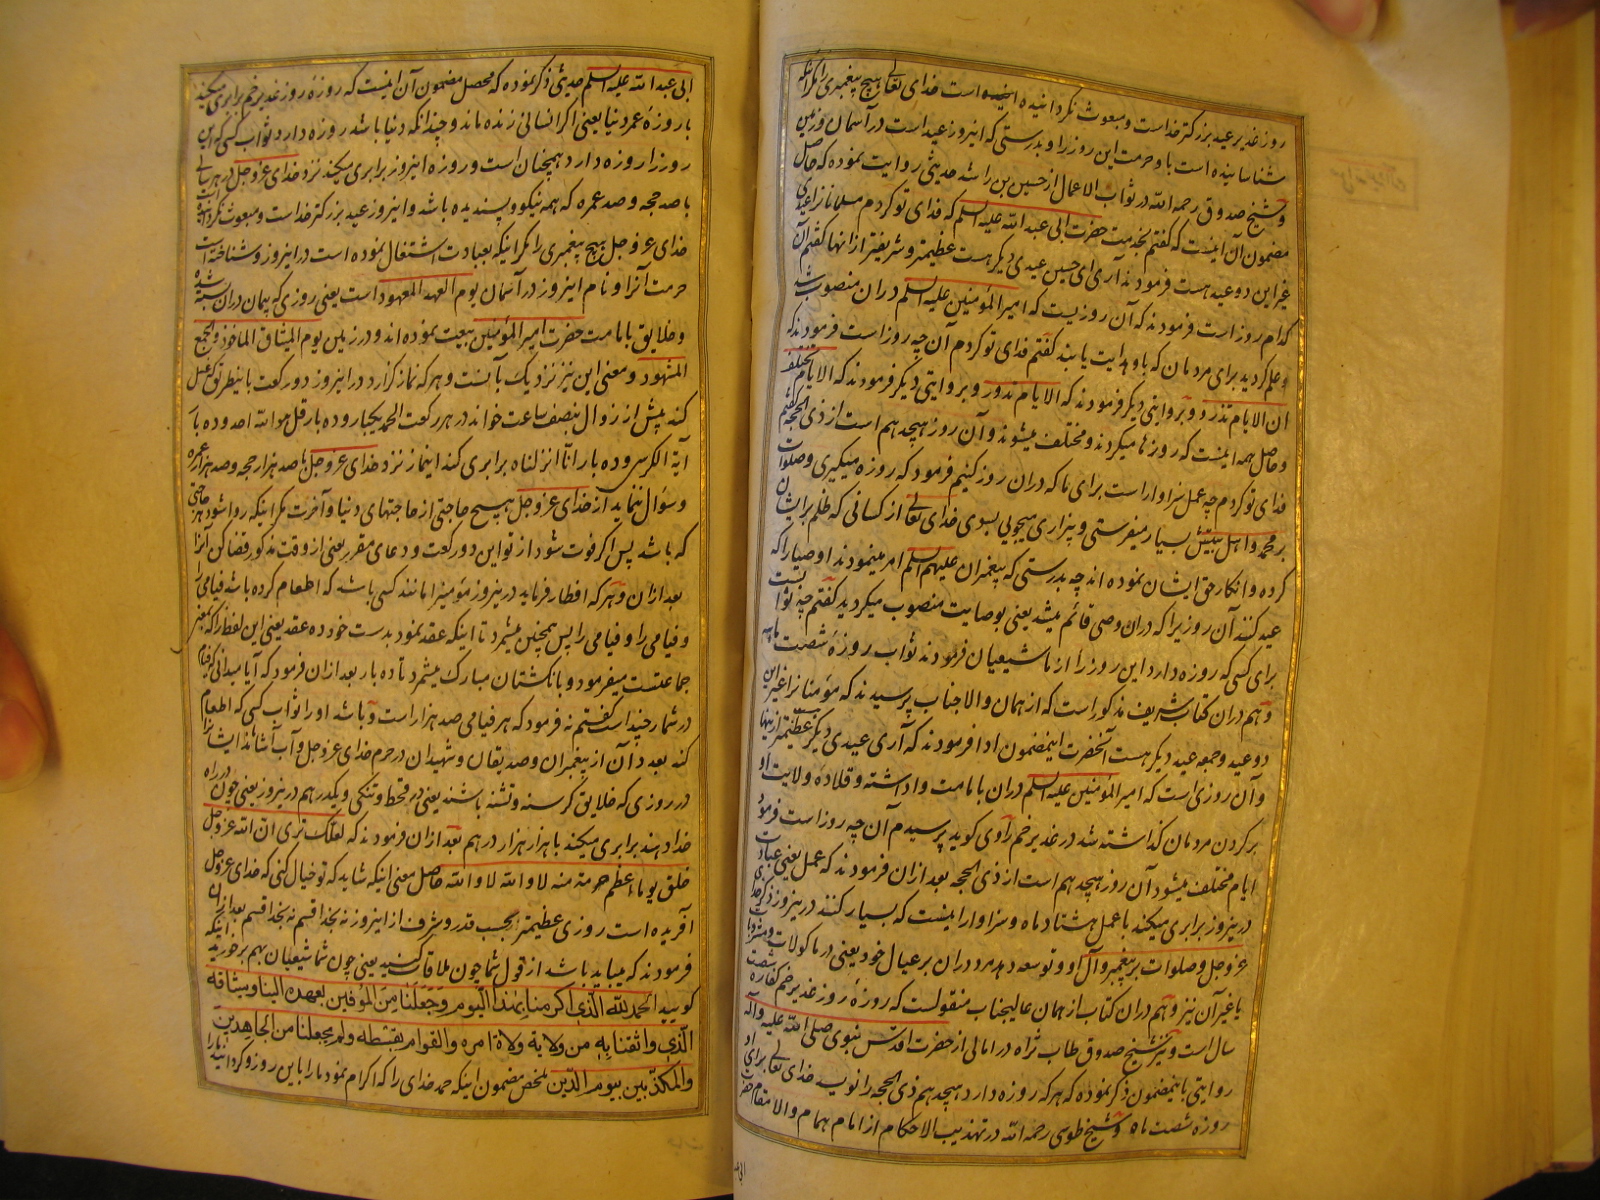 روز غدیر عید بزرگتر خداست و مبعوث نگردانیده است خدای تعالی هیچ پیغمبری را مگر آنکه
شناسانیده است باو حرمت این روز را و بدرستی که اینروز عید است در آسمان و زمین
و شیخ صدوق رحمه الله در ثواب الاعمال از حسین بن راشد حدیثی روایت نموده که حاصل
مضمون آن اینست که گفتم بخدمت حضرت ابی عبد الله علیه السلم که فدای تو کردم مسلمانانرا عیدی
غیر این دو عید هست فرمودند آری ای حسین عیدی دیگر هست عظیمتر و شریفتر از انها گفتم آن
کدام روز است فرمودند که آن روزیست که امیر المؤمنین علیه السلم دران منصوب شد
و علم کردید برای مردمان که باو هدایت یابند گفتم فدای تو کردم آن چه روز است فرمودند که
ان الایام تدور و بروایتی دیگر فرمودند که الایام تدور و بروایتی دیگر فرمودند که الایام تختلف
و حاصل همه اینست که روزها میگردند و مختلف میشوند و آن روز هیجدهم است از ذی الحجه گفتم
فدای تو کردم چه عمل سزاوار است برای ما که دران روز کنیم فرمود که روزه میگیری و صلوات
بر محمد و اهل بیتش بسیار میفرستی و بیزاری میجویی بسوی خدای تعالی از کسانی که ظلم بر ایشان
کرده و انکار حق ایشان نموده اند چه بدرستی که پیغمبران علیهم السلم امر مینمودند اوصیا را که
عید کنند آن روزیرا که دران وصی قائم میشد یعنی بوصایت منصوب میگردید گفتم چه ثوابست
برای کسی که روزه دارد این روز را از ما شیعیان فرمودند ثواب روزهٔ شصت ماهه
و هم دران کتاب شریف مذکور است که از همان والاجناب پرسیدند که مؤمنانرا غیر این
دو عید و جمعه عید دیگر هست آنحضرت اینمضمون ادا فرمودند که آری عیدی دیگر عظیمتر از اینها
و آن روزی است که امیر المؤمنین علیه السلم دران بامامت واداشته و قلادهٔ ولایت او
بر گردن مردمان گذاشته شد در غدیر خم راوی گوید پرسیدم آن چه روز است فرمود
ایام مختلف میشود آن روز هیجدهم است از ذی الحجه بعد ازان فرمودند که عمل یعنی عبادت
درینروز برابری میکند با عمل هشتاد ماه و سزاوار اینست که بسیار کنند درینروز ذکر خدای
عز و جل و صلوات بر پیغمبر و آل او و توسعه دهد مرد دران بر عیال خود یعنی در ماکولات و مشروبات
یا غیر آن نیز و هم دران کتاب از همان عالیجناب منقولست که روزهٔ روز غدیر خم کفاره شصت
سال است و نیز شیخ صدوق طاب ثراه در امالی از حضرت اقدس نبوی صلی الله علیه و آله
روایتی باینمضمون ذکر نموده که هر که روزه دارد هیجدهم ذی الحجه را نویسد خدای تعالی برای او
روزه شصت ماه و شیخ طوسی رحمه الله در تهذیب الاحکام از امام همام والامقام حضرت
ابی
ابی عبد الله علیه السلم حدیثی ذکر نموده که محصل مضمون آن اینست که روزهٔ روز غدیر خم برابری میکند
با روزهٔ عمر دنیا یعنی اگر انسانی زنده ماند و چندانکه دنیا باشد روزه دارد و ثواب کسی که این
روز را روزه دارد همچنان است و روزه اینروز برابری میکند نزد خدای عز و جل در هر سالی
با صد حجه و صد عمره که همه نیکو و پسندیده باشد و اینروز عید بزرگتر خداست و مبعوث نگردانیده است
خدای عز و جل هیچ پیغمبری را مگر اینکه بعبادت اشتغال نموده است در اینروز و شناخته است
حرمت آنرا و نام اینروز در آسمان یوم العهد المعهود است یعنی روزی که پیمان دران بسته شده
و خلایق بامامت حضرت امیر المؤمنین بیعت نموده اند و در زمین یوم المیثاق الماخوذ و الجمع
المشهود و معنی این نیز نزدیک بآنست و هر که نماز گزارد در اینروز دو رکعت باینطریق که غسل
کند پیش از زوال بنصف ساعت خواند در هر رکعت الحمد یکبار و ده بار قل هو الله احد و ده بار
آیة الکرسی و ده بار انا انزلناه برابری کند اینماز نزد خدای عز و جل با صد هزار حجه و صد هزار عمره
و سؤال ننماید از خدای عز و جل هیچ حاجتی از حاجتهای دنیا و آخرت مگر اینکه روا شود هر حاجتی
که باشد پس اگر فوت شود از تو این دو رکعت و دعای مقرر یعنی از وقت مذکور قضا کن آنرا
بعد ازان و هر که افطار فرماید درینروز مؤمنیرا مانند کسی باشد که اطعام کرده باشد فیامی را
و فیامی را و فیامی را پس همچنین میشمرد تا اینکه عقد نمود بدست خود ده عقد یعنی این لفظ را که بمعنی
جماعتست میفرمود و بانگشتان مبارک میشمرد تا ده بار بعد ازان فرمود که آیا میدانی که فیام
در شمار چند است گفتم نه فرمود که هر فیامی صد هزار است و باشد او را ثواب کسی که اطعام
کند بعدد آن از پیغمبران و صدیقان و شهیدان در حرم خدای عز و جل و آب آشاماند ایشانرا
در روزی که خلایق گرسنه و تشنه باشند یعنی در قحط و تنگی و یکدرهم درینروز یعنی چون در راه
خدا دهند برابری میکند با هزار هزار درهم بعد ازان فرمودند که لعلک تری ان الله عز و جل
خلق یوما اعظم حرمة منه لا و الله لا و الله حاصل معنی اینکه شاید که تو خیال کنی که خدای عز و جل
آفریده است روزی عظیمتر بحسب قدر و شرف از اینروز نه بخدا قسم نه بخدا قسم بعد ازان
فرمودند که میباید باشد از قول شما چون ملاقات کنید یعنی چون شما شیعیان بهم برخورید اینکه
گویید الحمد لله الذی اکرمنا بهذا الیوم و جعلنا من الموفین بعهده الینا و میثاقه
الذی واثقنا به من ولایة ولاة امره و القوام بقسطه و لم یجعلنا من الجاحدین
و المکذبین بیوم الدین ملخص مضمون اینکه حمد خدای را که اکرام نمود ما را باین روز و گردانید ما را